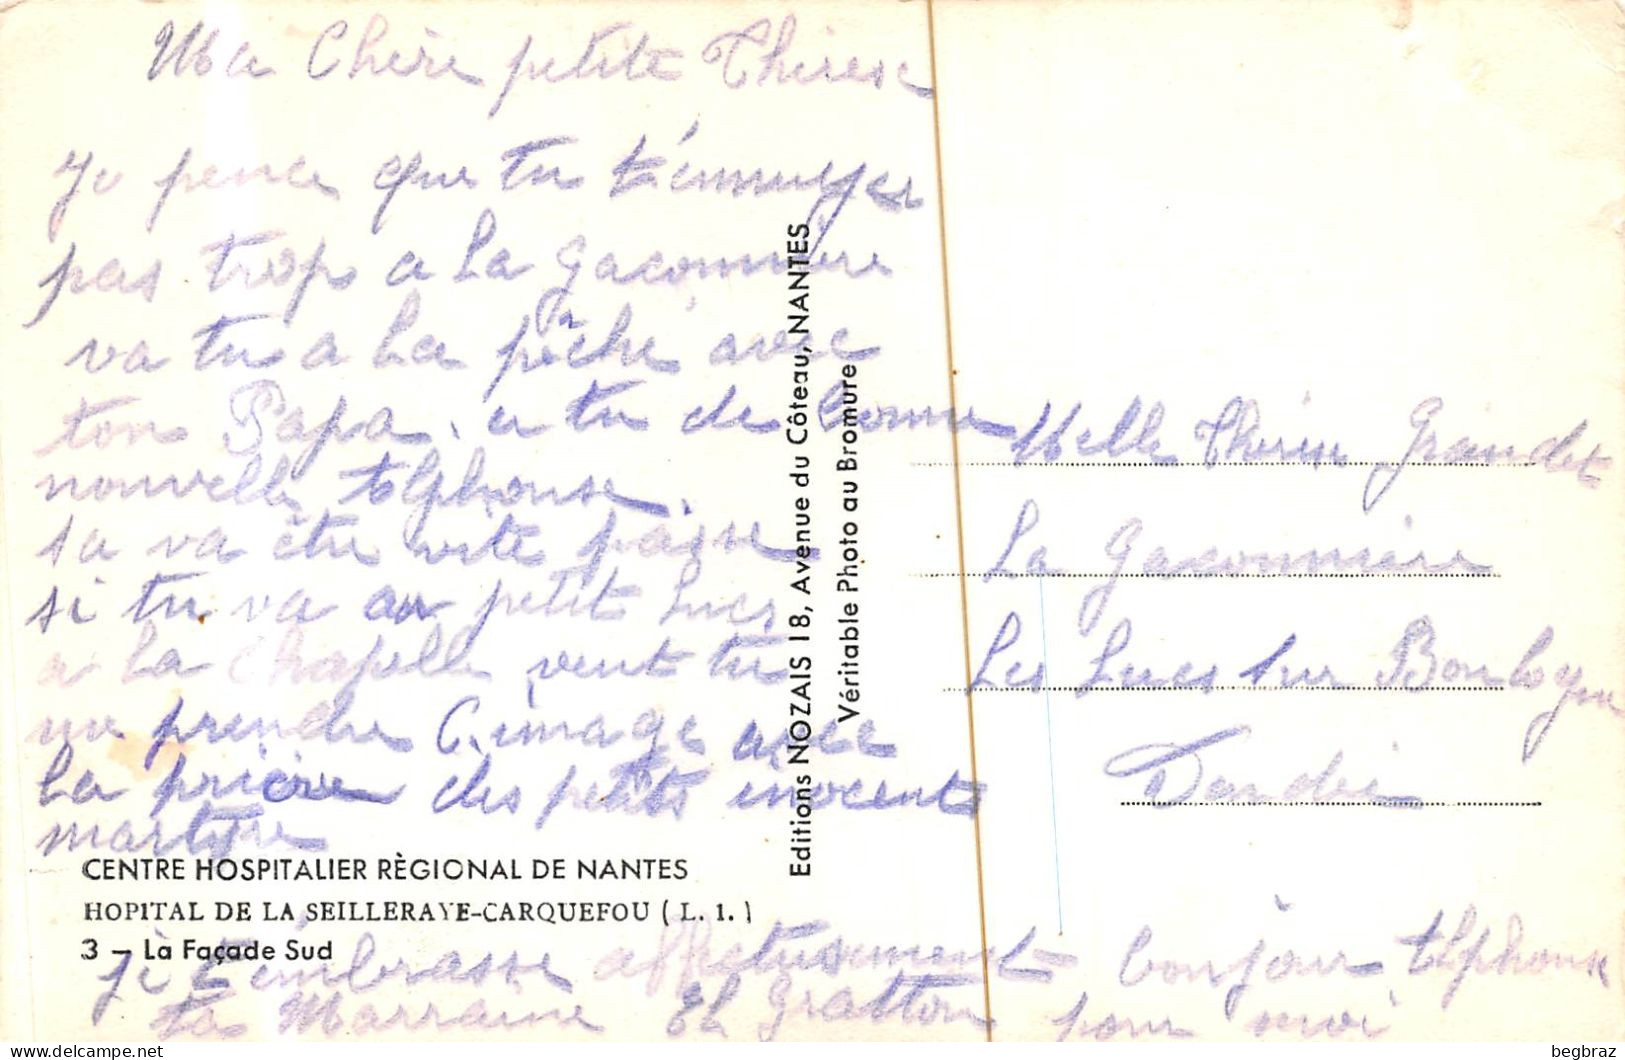 Ma Chère petite Thérèse
Je pence que tu t'ennuyer
pas trop a La gaconnière
va tu a La pêche avec
ton Papa. a tu de bonne
nouvelle Alphonse.
sa va être vite passe
si tu va au petit Lucs
a La Chapelle veut tu
me prendre C. image avec
La prière des petits inocents
martyre
je t'embrasse affectusement
ta Marraine El gratton
bonjour Alphonse
pour moi
Melle Thérèse Grandet
La gaconnière
Les Lucs sur Boulogne
Vendée
CENTRE HOSPITALIER RÈGIONAL DE NANTES
HOPITAL DE LA SEILLERAYE-CARQUEFOU ( L. I. )
3 — La Façade Sud
Editions NOZAIS 18, Avenue du Côteau, NANTES
Véritable Photo au Bromure
begbraz